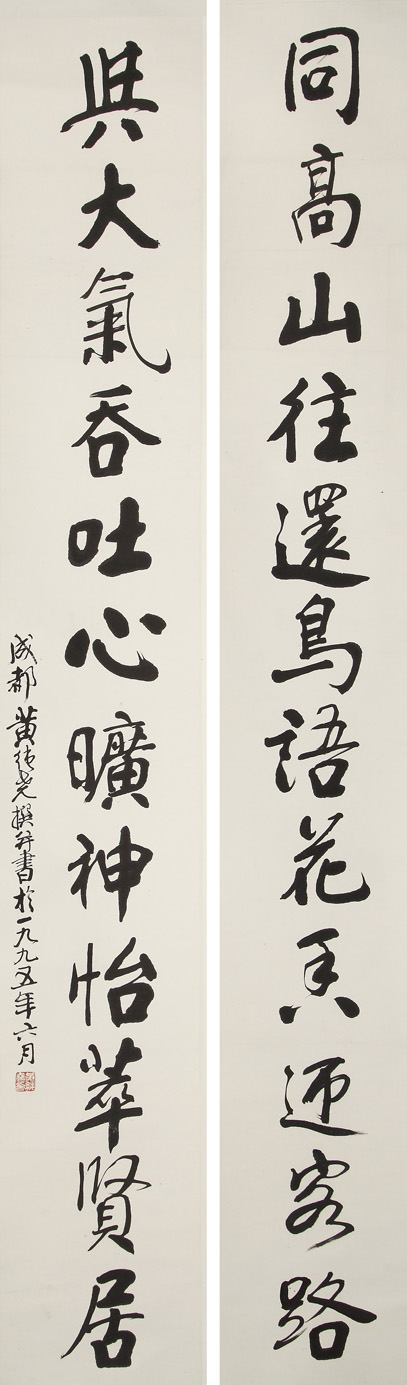 同高山往還鳥語花香迎客路
與大氣吞吐心曠神怡萃賢居
成都黄撰并書於一九九五年六月